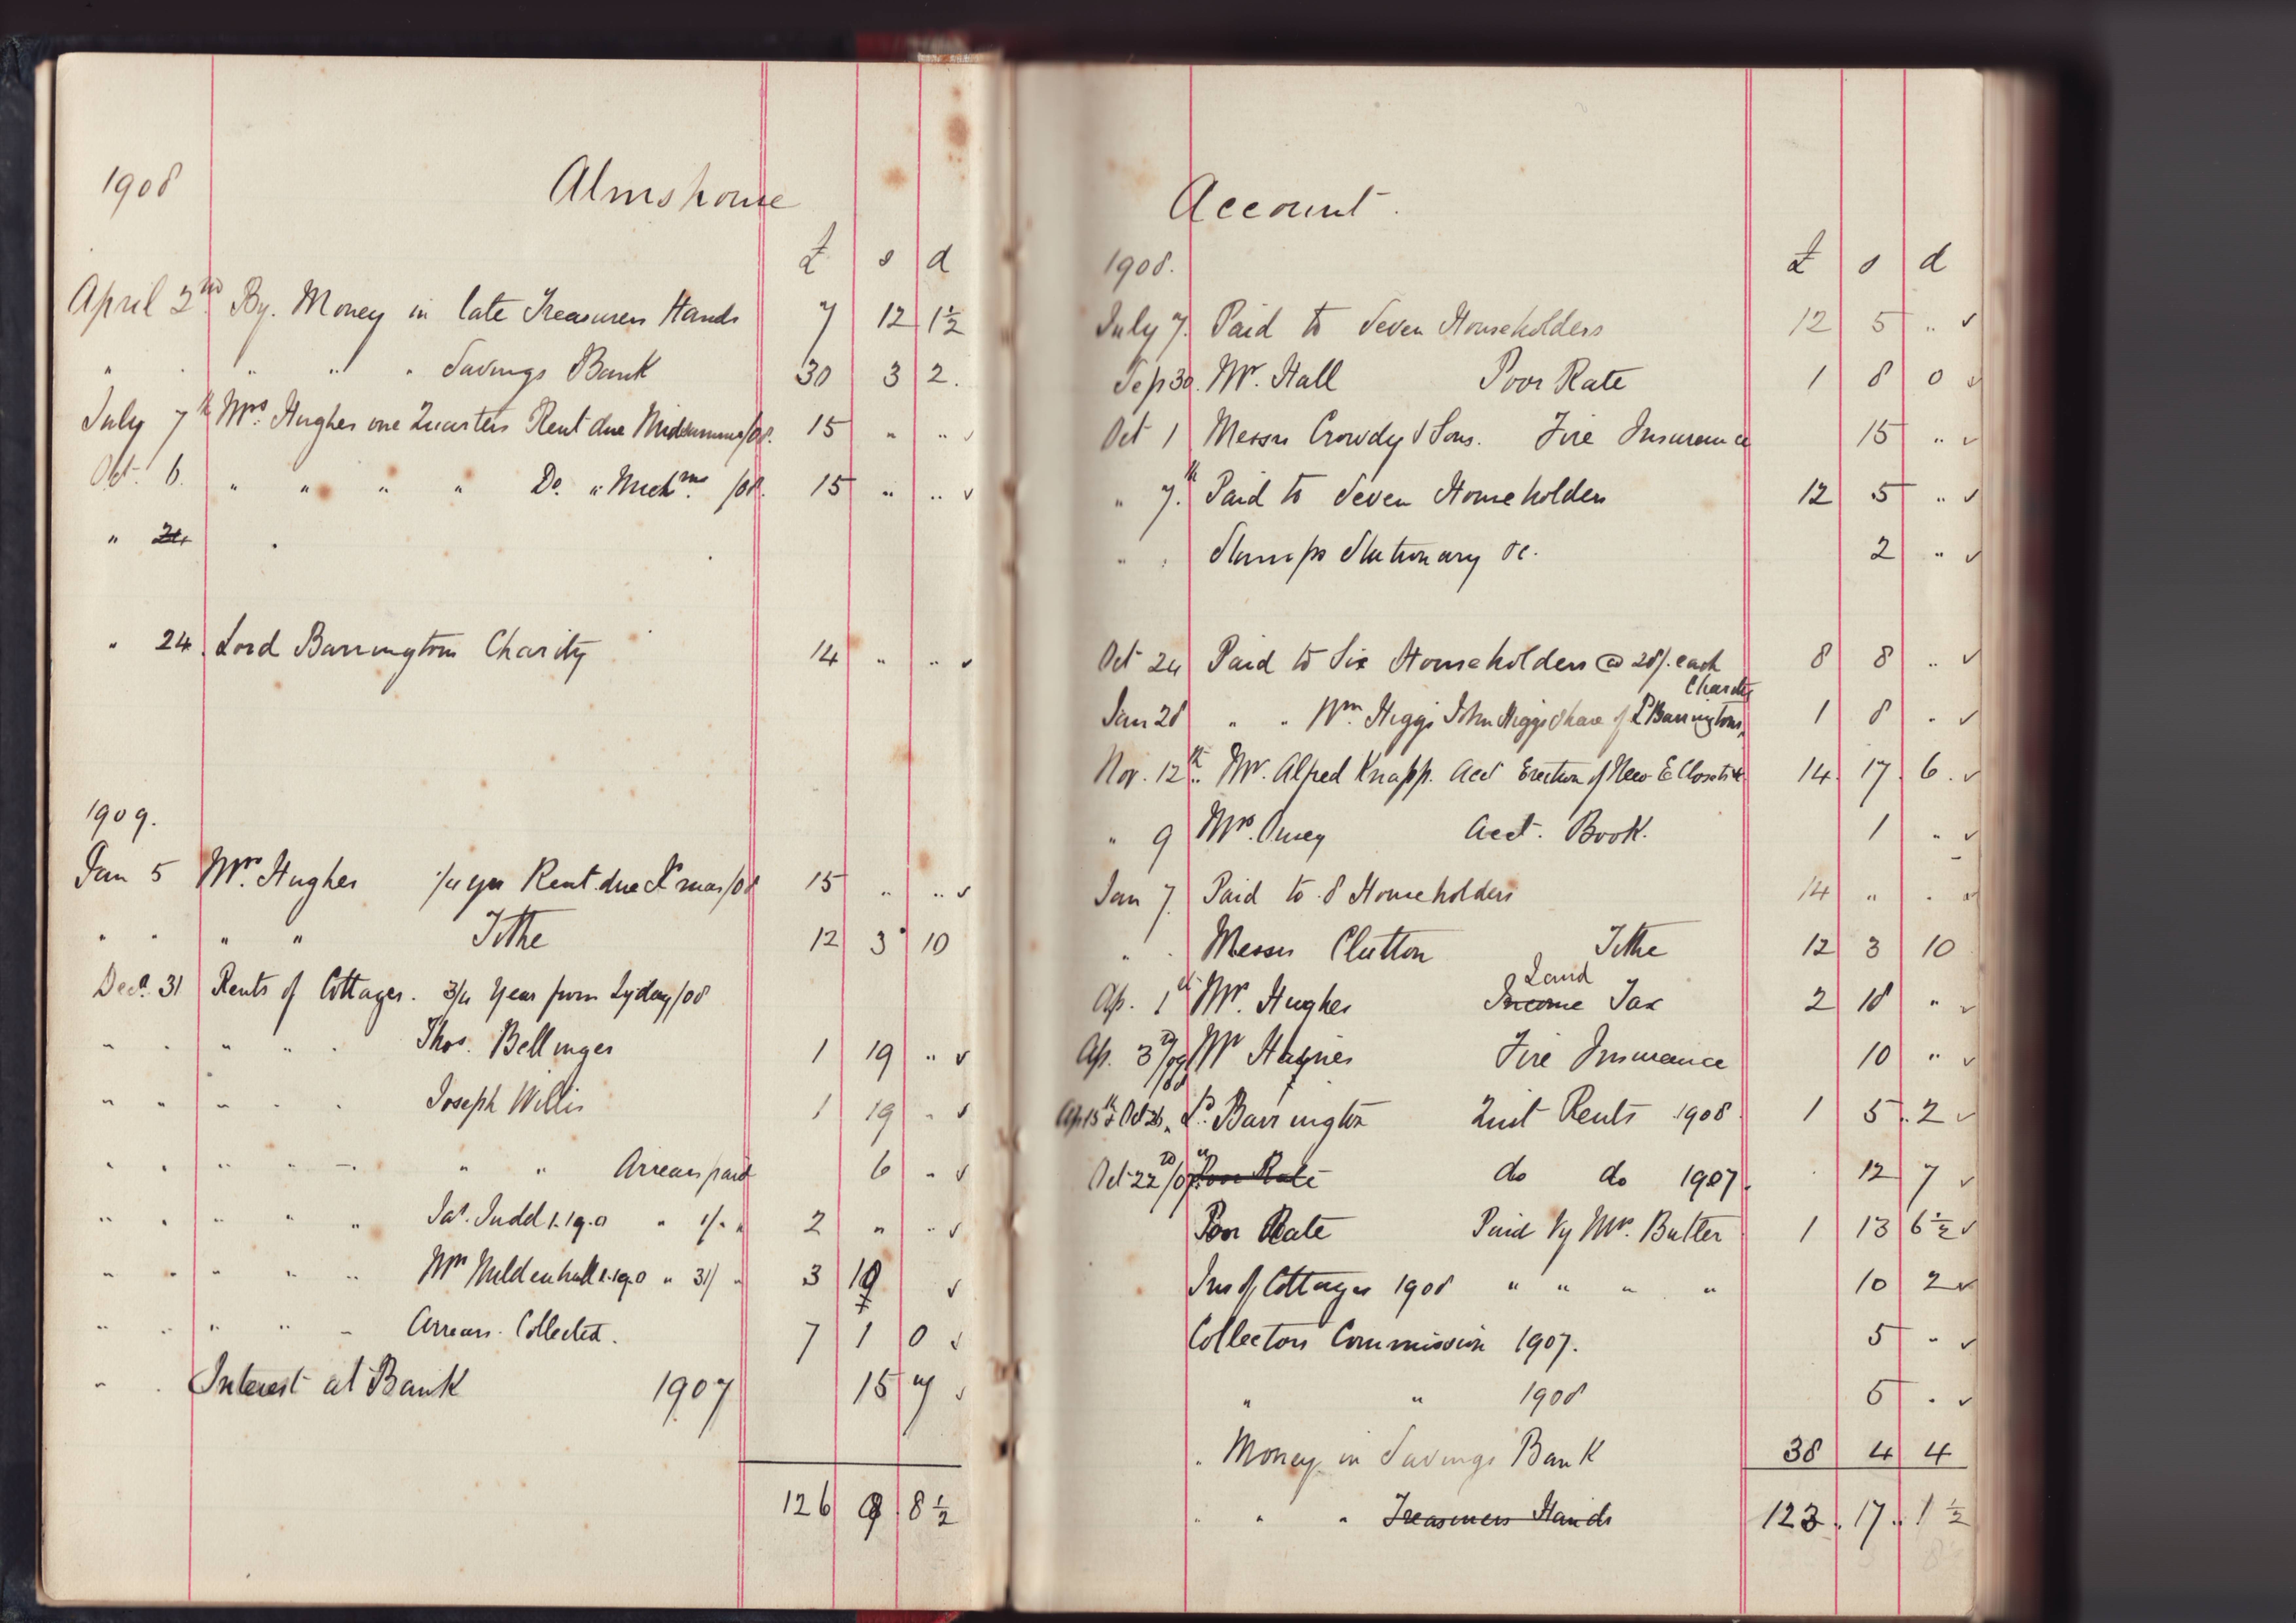 1908
Almshouse
£ s d
April 2nd By. Money in late Treasurers Hands 7 12 1½
" " " " Savings Bank 30 3 2.
July 7th Mrs. Hughes one Quarters Rent due Midsummer/08. 15 " " ✓
Oct. 6. " " " " Do. " Michms. /08. 15 " " ✓
" 24
" 24 Lord Barrington Charity 14 " " ✓
1909.
Jan 5 Mr. Hughes ¼ yrs Rent due Xmas/08 15 " " ✓
" " " " Tithe 12 3 10
Decr. 31 Rents of Cottages. 3/4 Year from Lyday/08
" " " " Thos. Bellinger 1 19 " ✓
" " " " Joseph Willis 1 19 " ✓
" " " " " " " Arrears paid 6 " ✓
" " " " " Jas. Judd 1.19.0 " 1/- " 2 " " ✓
" " " " " Wm Mildenhall 1.19.0 " 31/ " 3 19 ✓
" " " " " Arrears Collected. 7 1 0 ✓
" " Interest at Bank 1907 15 7 ✓
126 9 8½
Account.
1908. £ s d
July 7. Paid to Seven Householders 12 5 " ✓
Sep 30. Mr. Hall Poor Rate 1 8 0 ✓
Oct 1 Messrs Crowdy & Sons. Fire Insurance 15 " ✓
" 7.th Paid to Seven Householders 12 5 " ✓
" " Stamps Stationary &c. 2 " ✓
Oct 24 Paid to Six Householders @ 28/. each 8 8 " ✓
Charity
Jan 28 " " Wm. Higgs John Higgs Share of Ld Barringtons 1 8 " ✓
Nov. 12th. Mr. Alfred Knapp. Acct Erection of New E Closets 14 17 6. ✓
" 9 Mrs. Acct. Book. 1 " ✓
Jan 7. Paid to 8 Householders 14 " " ✓
" " Messrs Clutton Tithe 12 3 10
Land
Ap. 1st Mr. Hughes Income Tax 2 18 " ✓
Ap. 3/09 Mr Fire Insurance 10 " ✓
Ap 15th & Oct Ld. Barrington Quit Rents 1908 1 5 2 ✓
Oct 22nd/07 Poor Rate do do 1907. 12 7 ✓
Poor Rate Paid by Mr. Butler 1 13 6½ ✓
Ins of Cottages 1908 " " " " 10 2 ✓
Collectors Commission 1907. 5 " ✓
" " 1908 5 " ✓
" Money in Savings Bank 38 4 4
" " " Treasurers Hands 123 17 1½